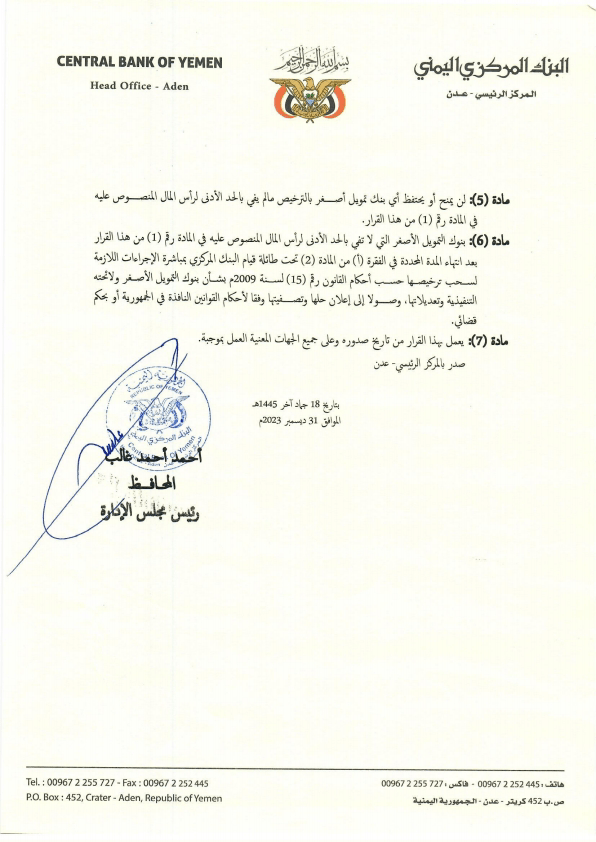 CENTRAL BANK OF YEMEN
Head Office - Aden
بسم الله الرحمن الرحيم
البنك المركزي اليمني
المركز الرئيسي - عدن
مادة (5): لن يمنح أو يحتفظ أي بنك تمويل أصغر بالترخيص مالم يفي بالحد الأدنى لرأس المال المنصوص عليه
في المادة رقم (1) من هذا القرار.
مادة (6): بنوك التمويل الأصغر التي لا تفي بالحد الأدنى لرأس المال المنصوص عليه في المادة رقم (1) من هذا القرار
بعد انتهاء المدة المحددة في الفقرة (أ) من المادة (2) تحت طائلة قيام البنك المركزي بمباشرة الإجراءات اللازمة
لسحب ترخيصها حسب أحكام القانون رقم (15) لسنة 2009م بشأن بنوك التمويل الأصغر ولائحته
التنفيذية وتعديلاتها، وصولا إلى إعلان حلها وتصفيتها وفقا لأحكام القوانين النافذة في الجمهورية أو بحكم
قضائي.
مادة (7): يعمل بهذا القرار من تاريخ صدوره وعلى جميع الجهات المعنية العمل بموجبة.
صدر بالمركز الرئيسي- عدن
بتاريخ 18 جماد آخر 1445هـ
الموافق 31 ديسمبر 2023م
REPUBLIC OF YEMEN
البنك المركزي اليمني
Central Bank Of Yemen
أحمد أحمد غالب
المحافظ
رئيس مجلس الإدارة
Tel. : 00967 2 255 727 - Fax : 00967 2 252 445
P.O. Box : 452, Crater - Aden, Republic of Yemen
هاتف : 00967 2 252 445 - فاكس : 00967 2 255 727
ص.ب 452 كريتر - عدن - الجمهورية اليمنية